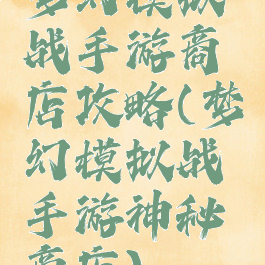 梦幻模拟
战手游商
店攻略(梦
幻模拟战
手游神秘
商店)